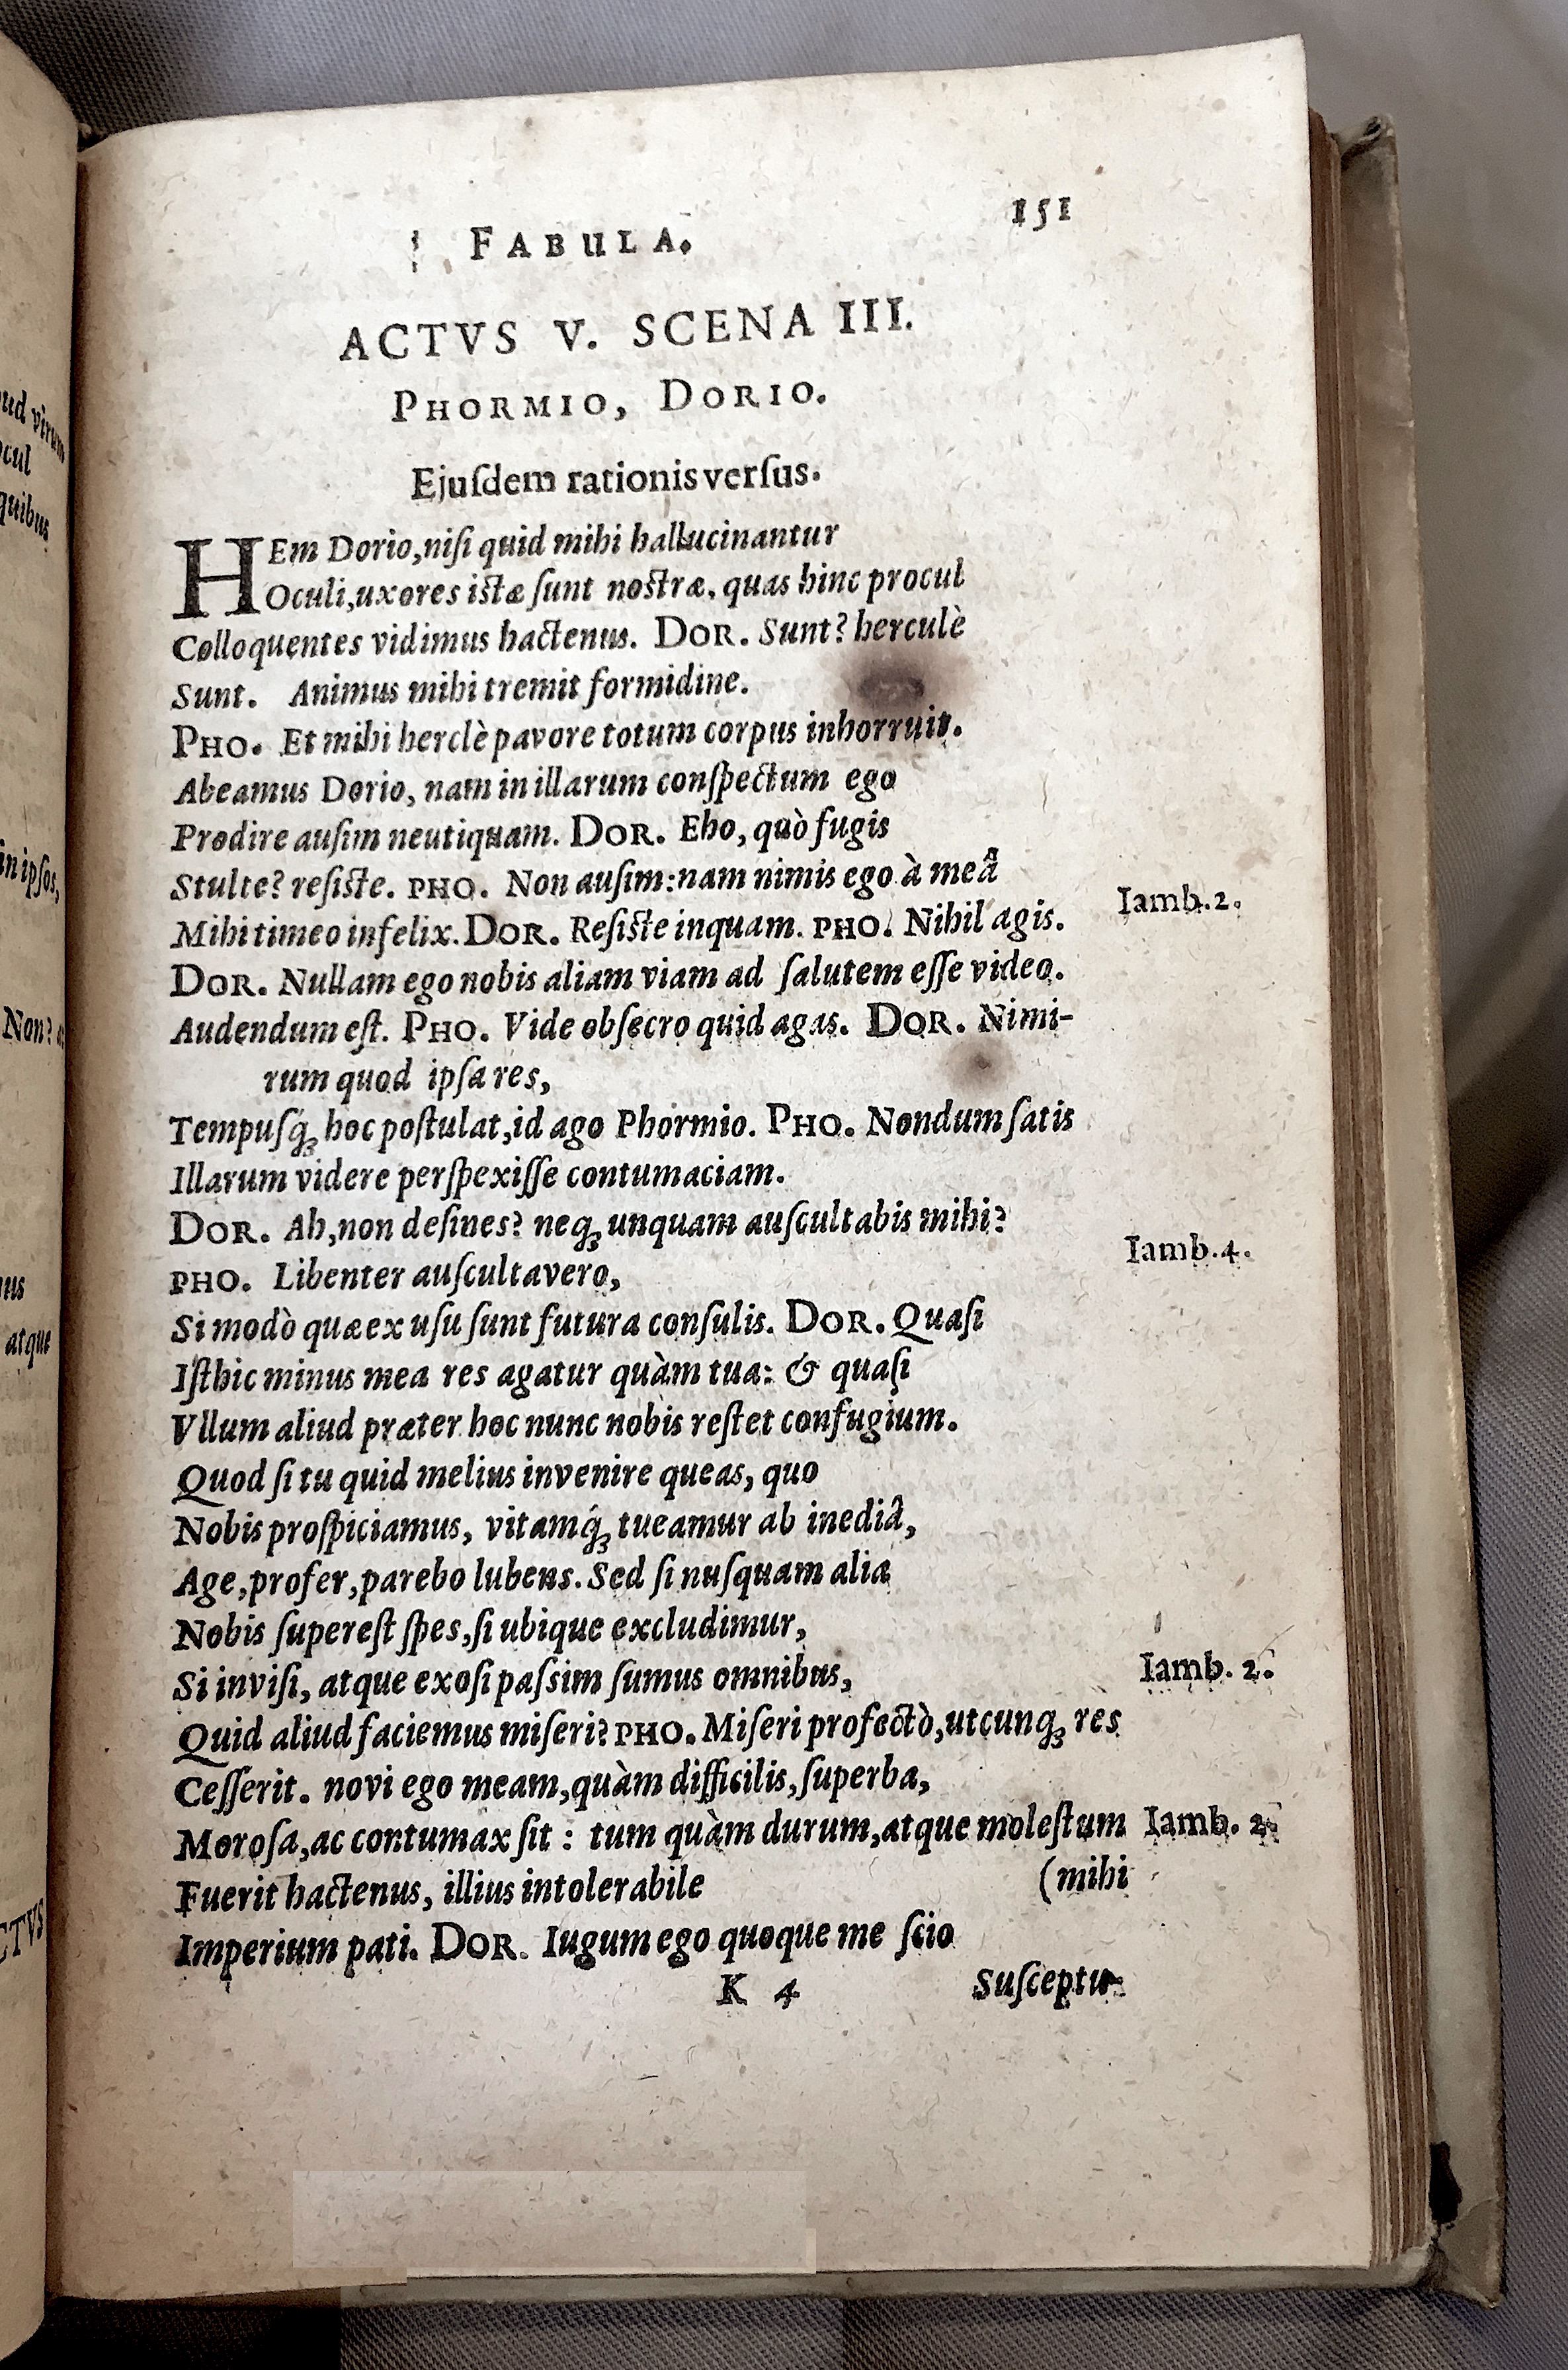 151
FABULA.
ACTVS V. SCENA III.
PHORMIO, DORIO.
Ejuſdem rationis verſus.
HEm Dorio, niſi quid mihi hallucinantur
Oculi, uxores iſtæ ſunt noſtræ, quas hinc procul
Colloquentes vidimus hactenus. DOR. Sunt? herculè
Sunt. Animus mihi tremit formidine.
PHO. Et mihi herclè pavore totum corpus inhorruit.
Abeamus Dorio, nam in illarum conſpectum ego
Prodire auſim neutiquam. DOR. Eho, quò fugis
Stulte? reſiſte. PHO. Non auſim: nam nimis ego à meâ
Iamb. 2.
Mihi timeo infelix. DOR. Reſiſte inquam. PHO. Nihil agis.
DOR. Nullam ego nobis aliam viam ad ſalutem eſſe video.
Audendum eſt. PHO. Vide obſecro quid agas. DOR. Nimi-
rum quod ipſa res,
Tempuſq́ꝫ hoc poſtulat, id ago Phormio. PHO. Nondum ſatis
Illarum videre perſpexiſſe contumaciam.
DOR. Ah, non deſines? neqꝫ unquam auſcultabis mihi?
Iamb. 4.
PHO. Libenter auſcultavero,
Si modò quæ ex uſu ſunt futura conſulis. DOR. Quaſi
Iſthic minus mea res agatur quàm tua: & quaſi
Vllum aliud præter hoc nunc nobis reſtet confugium.
Quod ſi tu quid melius invenire queas, quo
Nobis proſpiciamus, vitamq́ꝫ tueamur ab inediâ,
Age, profer, parebo lubens. Sed ſi nuſquam alia
Nobis ſupereſt ſpes, ſi ubique excludimur,
Si inviſi, atque exoſi paſsim ſumus omnibus,
Iamb. 2.
Quid aliud faciemus miſeri? PHO. Miſeri profectò, utcunqꝫ res
Ceſſerit. novi ego meam, quàm difficilis, ſuperba,
Moroſa, ac contumax ſit : tum quàm durum, atque moleſtum
Iamb. 2.
(mihi
Fuerit hactenus, illius intolerabile
Imperium pati. DOR. Iugum ego quoque me ſcio
K 4
Suſceptu-